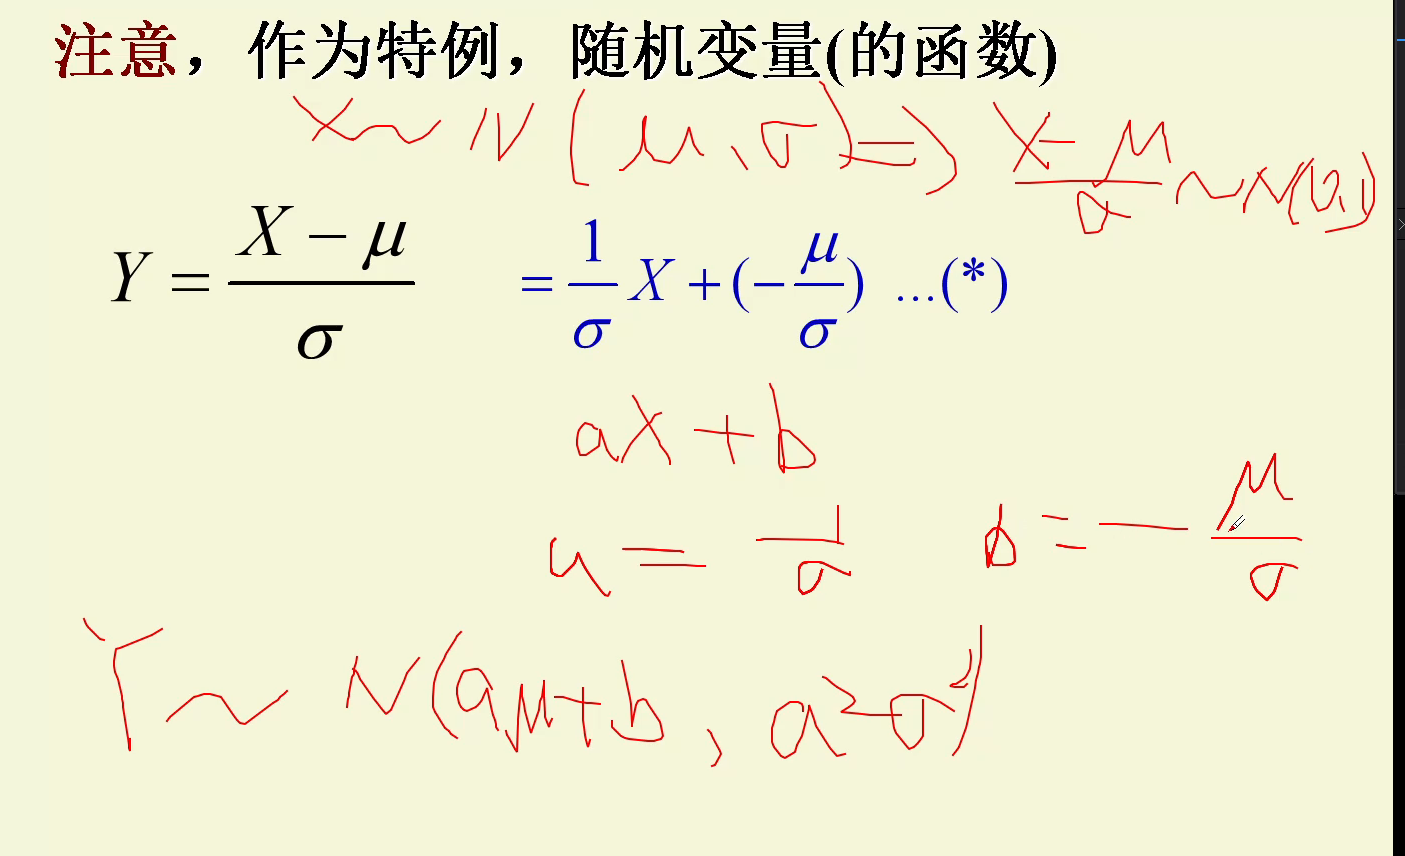 注意，作为特例，随机变量(的函数)
X ~ N(μ, σ) ⇒ (X-μ)/σ ~ N(0,1)
Y = (X - μ)/σ = 1/σ X + (-μ/σ) ...(*)
aX + b
a = 1/σ b = - μ/σ
Y ~ N(aμ+b, a²σ²)